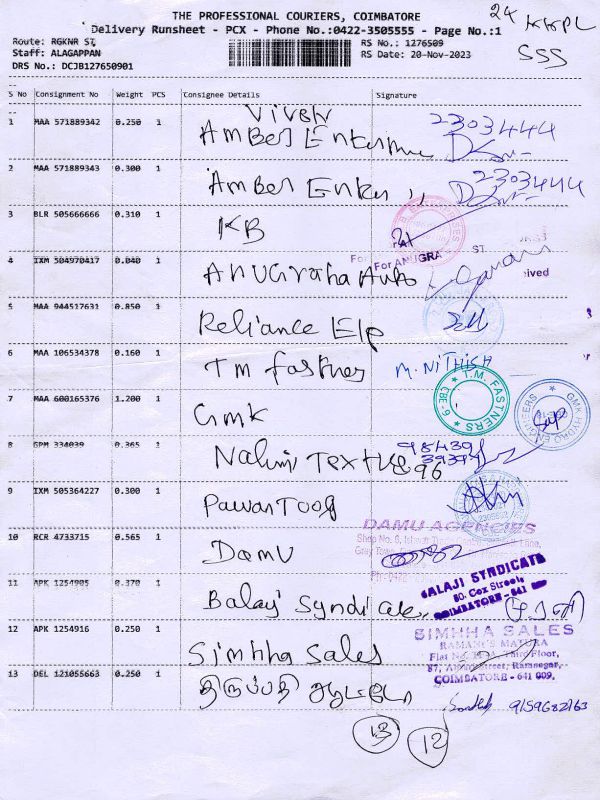 THE PROFESSIONAL COURIERS, COIMBATORE
24 KKPL
Delivery Runsheet - PCX - Phone No.:0422-3505555 - Page No.:1
Route: RGKNR ST,
RS No.: 1276509
SSS
Staff: ALAGAPPAN
RS Date: 20-Nov-2023
DRS No.: DCJB127650901
S No Consignment No Weight PCS Consignee Details Signature
1 MAA 571889342 0.250 1 Amber 2303444
2 MAA 571889343 0.300 1 Amber Enter 〃 2303444
3 BLR 505666666 0.310 1 KB
For ANUGRA ST.
4 IXM 504970417 0.040 1 Anugraha Auto
5 MAA 944517631 0.850 1 Reliance Elp
6 MAA 106534378 0.160 1 TM fastner M. NITHISH
T.M. FASTNERS CBE-6
7 MAA 600165376 1.200 1 GMK
GMK HYDRO ENGINEERS
8 GPM 334039 0.365 1 Textiles
9 IXM 505364227 0.300 1 Pawan Tools
DAMU AGENCIES
10 RCR 4733715 0.565 1 Damu
BALAJI SYNDICATE
80, Cox Street,
COIMBATORE - 641
11 APK 1254905 0.370 1 Balaji Syndicate
SIMHHA SALES
12 APK 1254916 0.250 1 Simhha Sales
Third Floor,
Ramnagar,
COIMBATORE - 641 009.
13 DEL 121055663 0.250 1 திருப்பதி
13 12